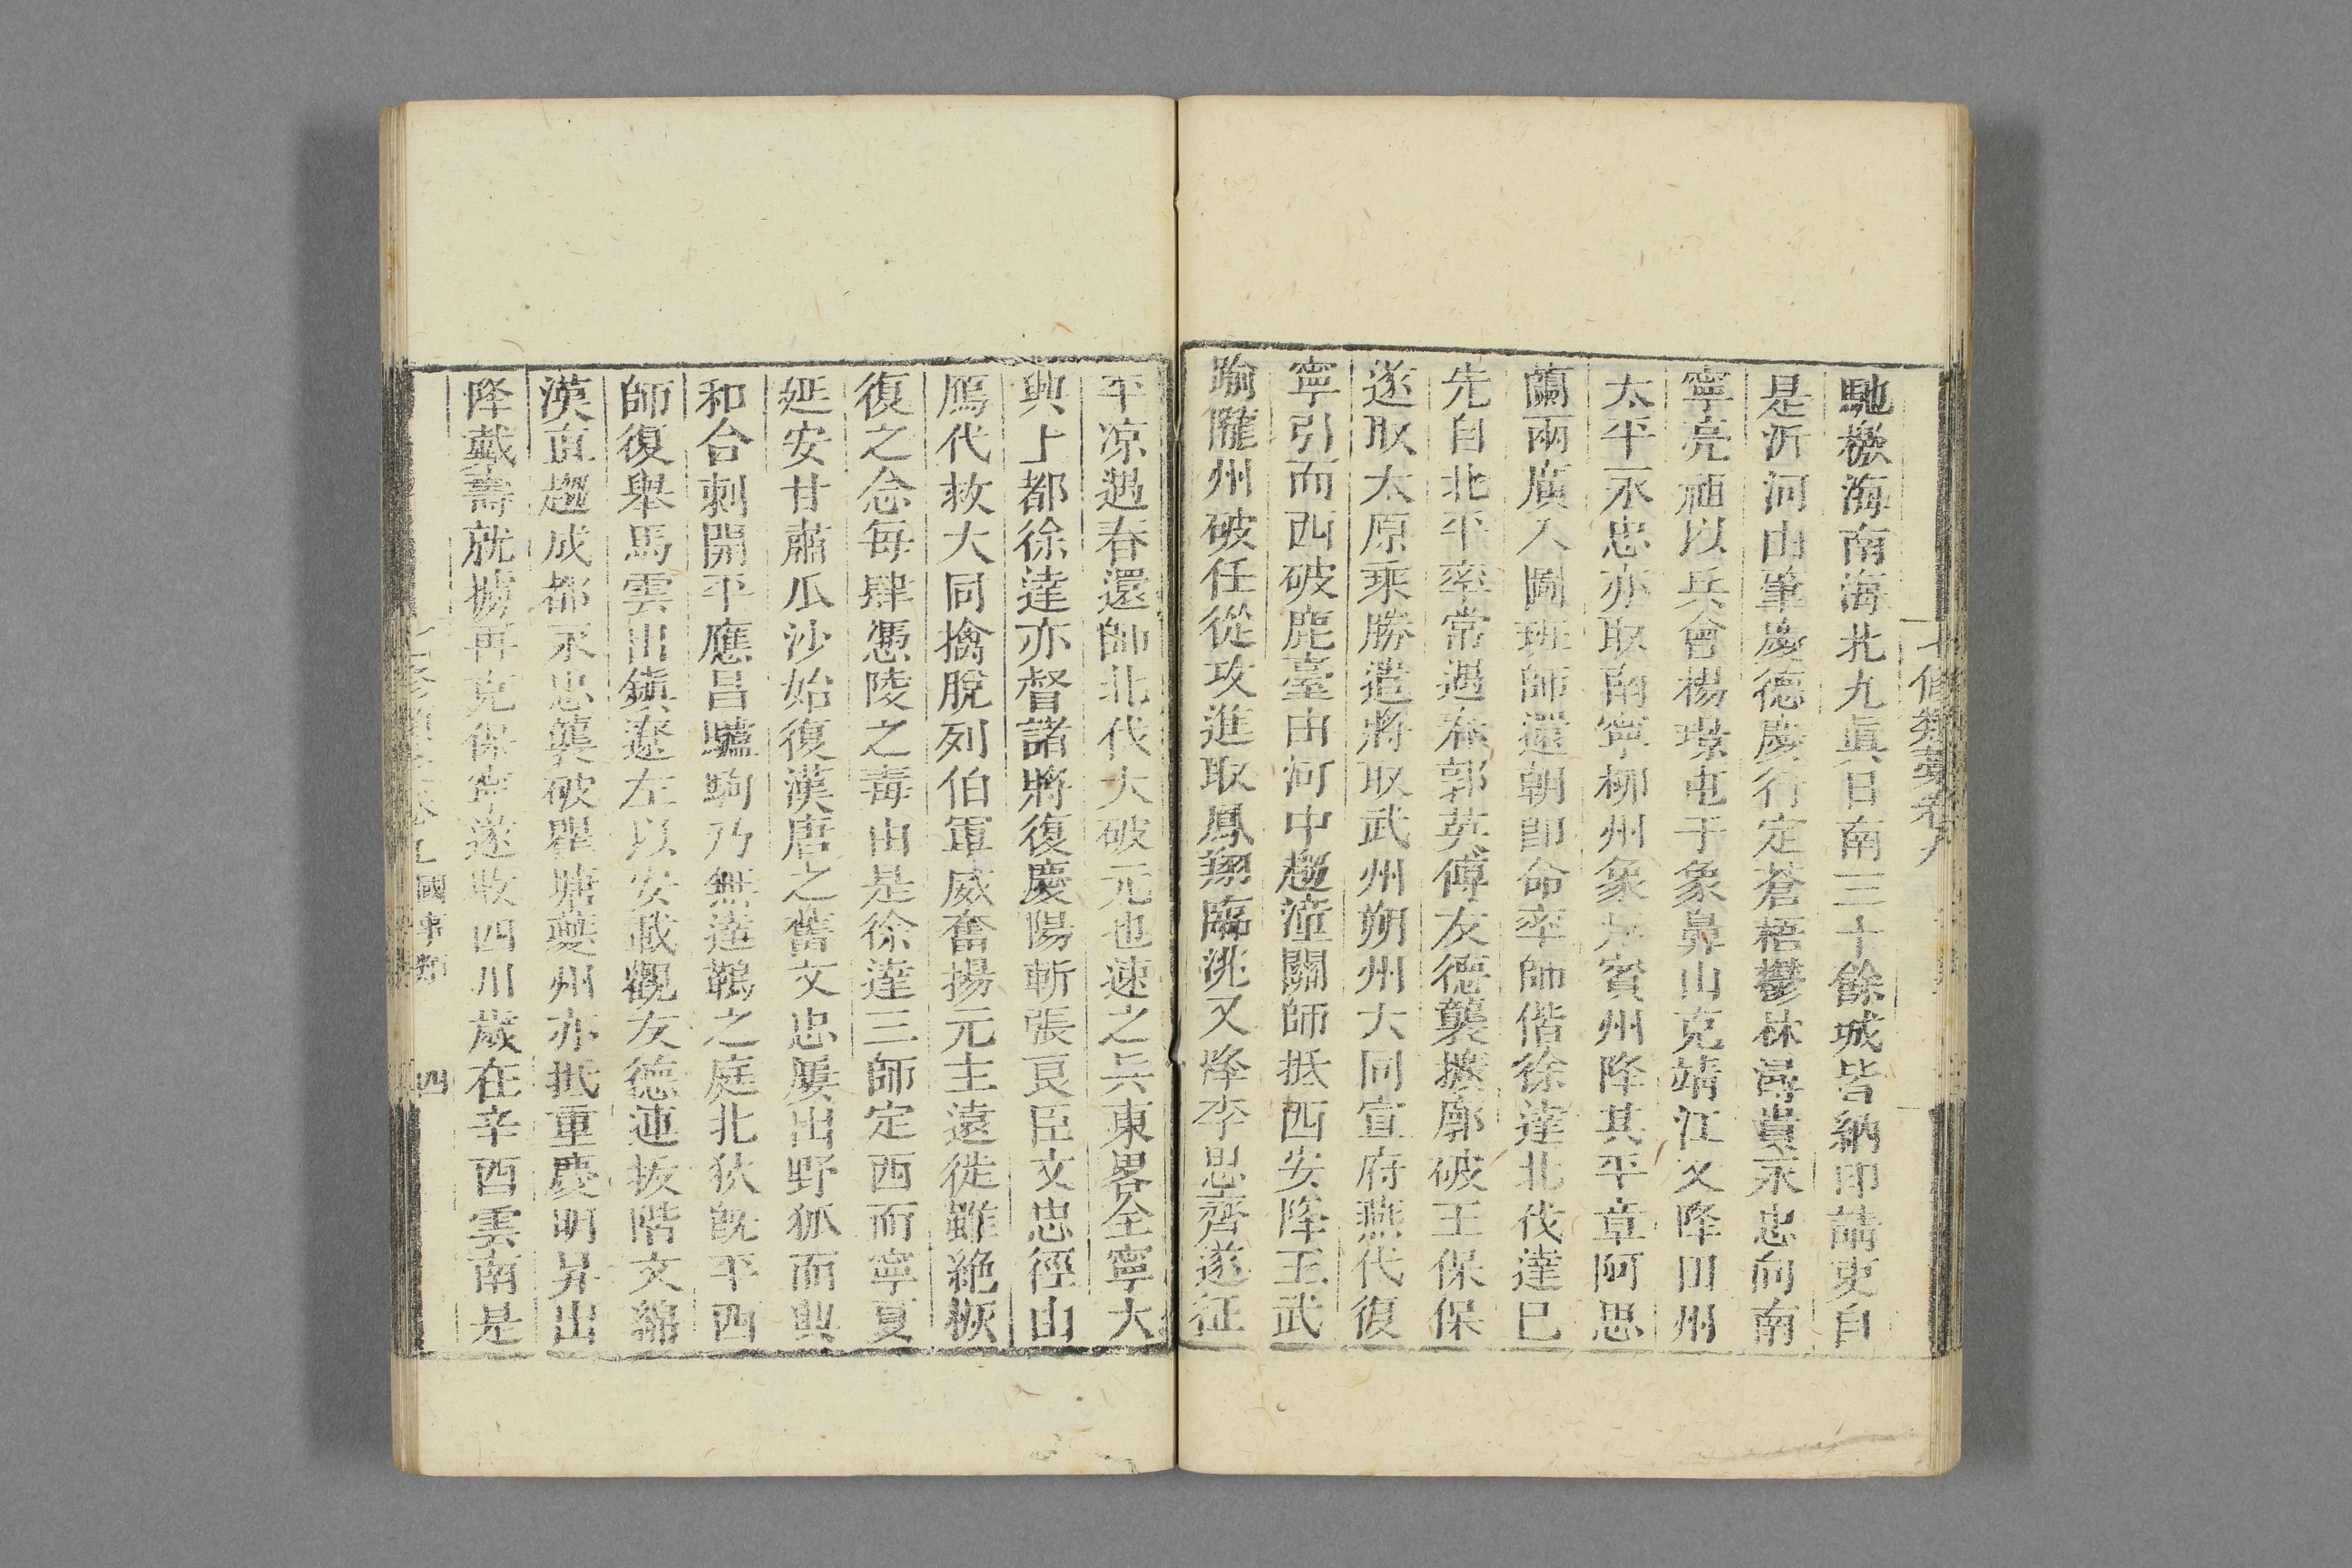 七修類藁卷八
馳檄海南海北九眞日南三十餘城皆納印請吏自
是沂河由肇慶德慶行定蒼梧鬱林潯貴永忠向南
寧亮祖以兵會楊璟屯于象鼻山克靖江又降田州
太平永忠亦取南寧柳州象州賓州降其平章阿思
蘭兩廣入圖班師還朝卽命率師偕徐達北伐達巳
先自北平率常遇春郭英傅友德襲擴廓破王保保
遂取太原乘勝遣將取武州朔州大同宣府燕代復
寧引而西破鹿臺由河中趨潼關師抵西安降王武
踰隴州破任從攻進取鳳翔臨洮又降李思齊遂征
平凉遇春還師北伐大破元也速之兵東畧全寧大
興上都徐達亦督諸將復慶陽斬張良臣文忠徑山
鴈代救大同擒脫列伯軍威奮揚元主遠徙雖絶恢
復之念每肆憑陵之毒由是徐達三師定西而寧夏
延安甘肅瓜沙始復漢唐之舊文忠屢出野狐而興
和台刺開平應昌驢駒乃無達鞨之庭北狄旣平西
師復舉馬雲出鎮遼左以安藏觀友德連拔階文綿
漢直趨成都永忠襲破瞿塘夔州亦抵重慶明昇出
降戴壽就擄再克保寧遂收四川歲在辛酉雲南是
國事類
四